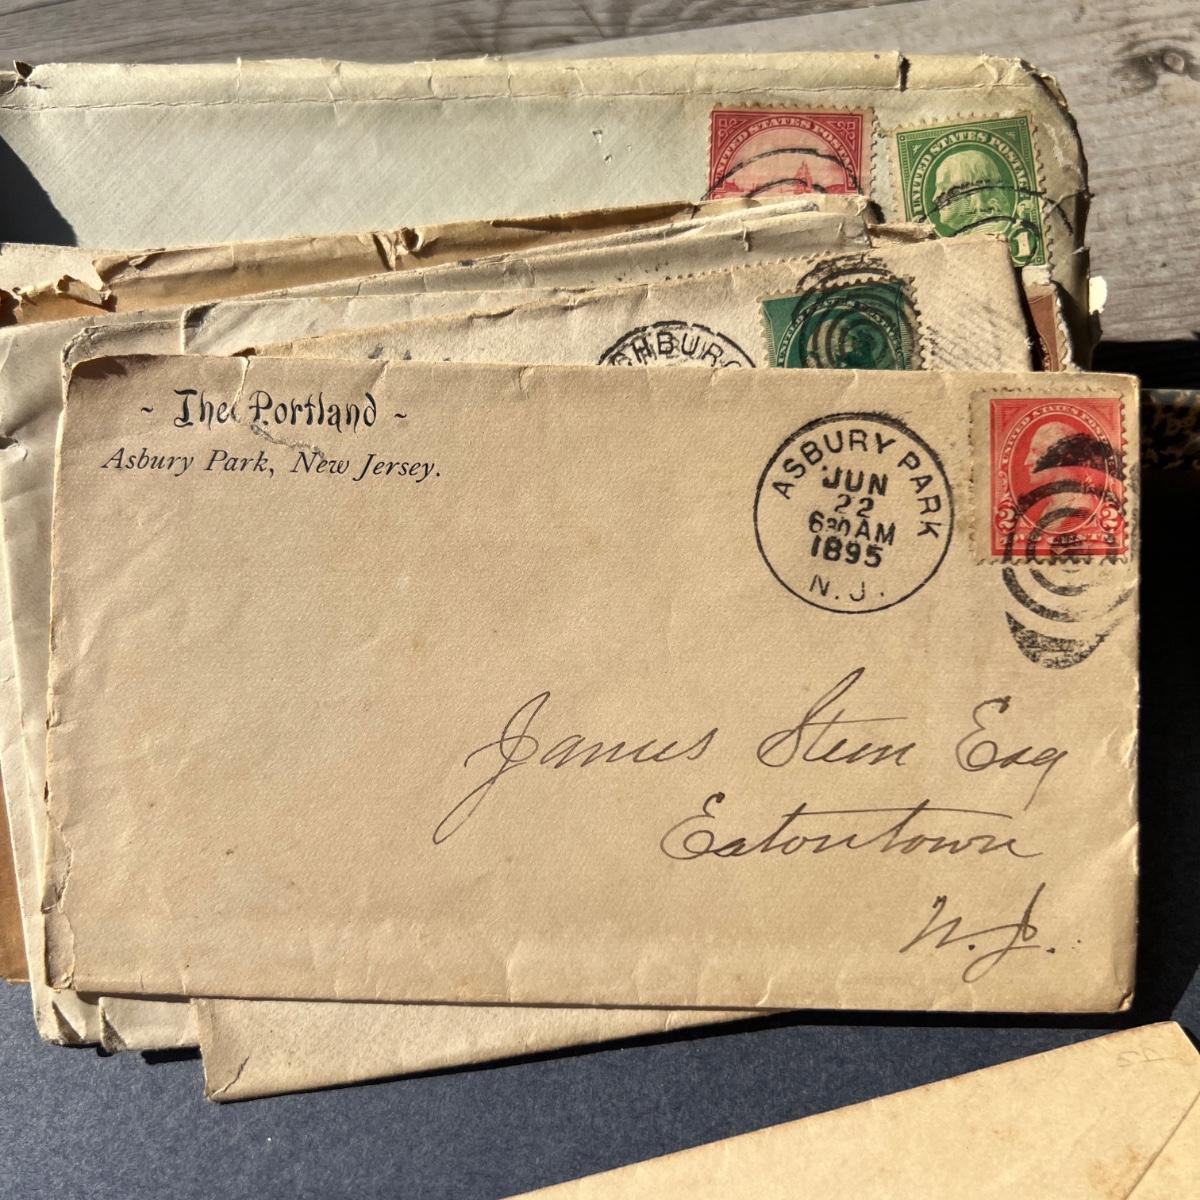 UNITED STATES POSTAGE
UNITED STATES POSTAGE
1
~ The Portland ~
Asbury Park, New Jersey.
ASBURY PARK
JUN
22
630AM
1895
N. J.
UNITED STATES POSTAGE
2 2
TWO CENTS
James Steen Esq
Eatontown
N. J.